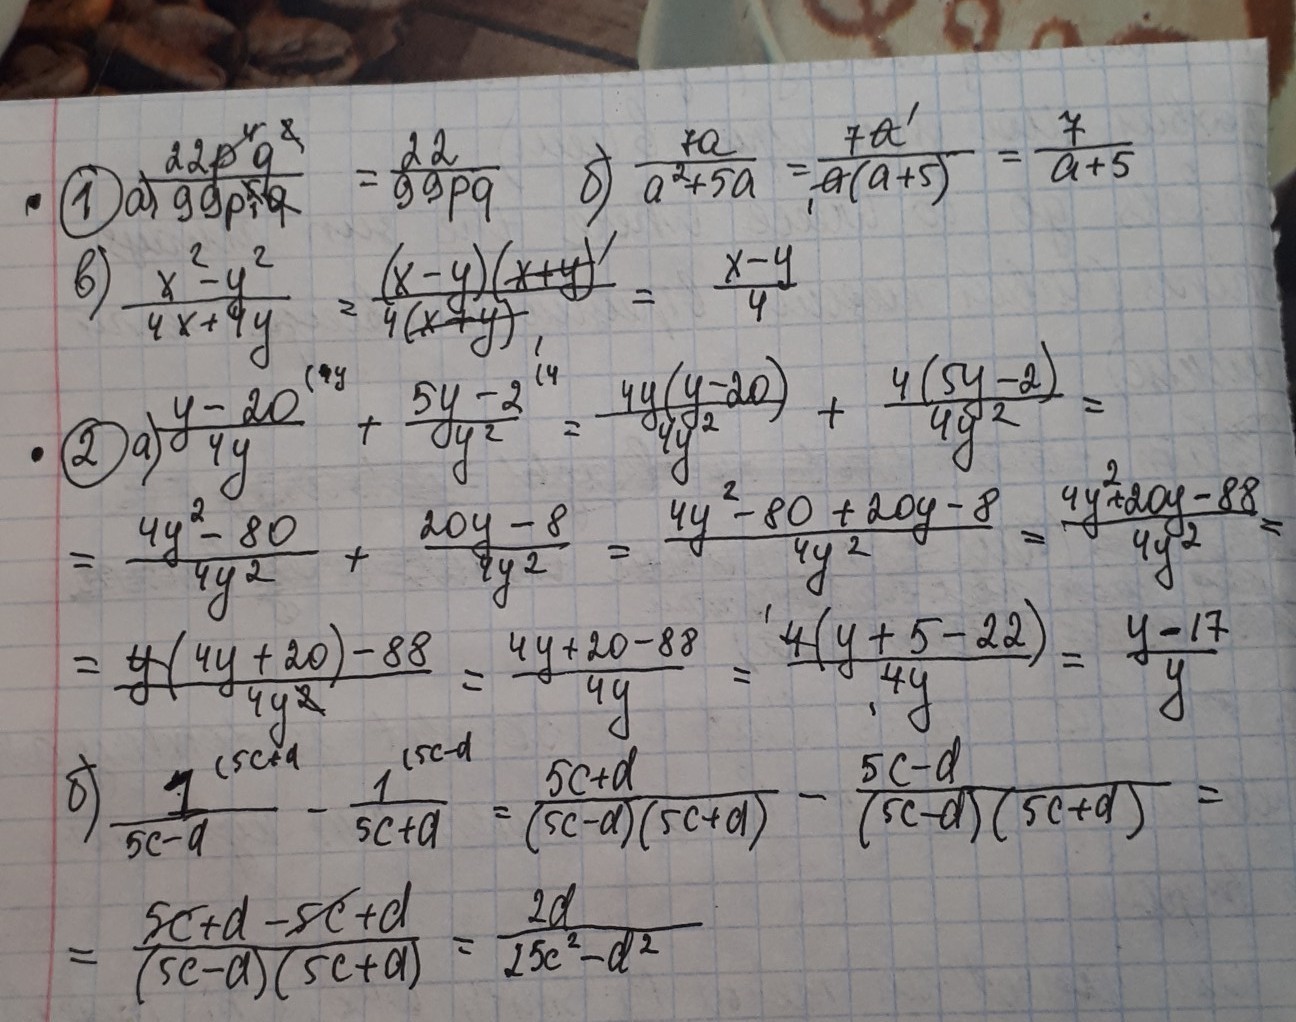 1 а) 22p⁴q²/99p⁵q = 22/99pq б) 7a/a²+5a = 7a/a(a+5) = 7/a+5
в) x²-y²/4x+4y = (x-y)(x+y)/4(x+y) = x-y/4
2 а) y-20(4y/4y + 5y-2(4/y² = 4y(y-20)/4y² + 4(5y-2)/4y² =
= 4y²-80/4y² + 20y-8/4y² = 4y²-80+20y-8/4y² = 4y²+20y-88/4y² =
= y(4y+20)-88/4y² = 4y+20-88/4y = 4(y+5-22)/4y = y-17/y
б) 1(5c+d/5c-d - 1(5c-d/5c+d = 5c+d/(5c-d)(5c+d) - 5c-d/(5c-d)(5c+d) =
= 5c+d-5c+d/(5c-d)(5c+d) = 2d/25c²-d²